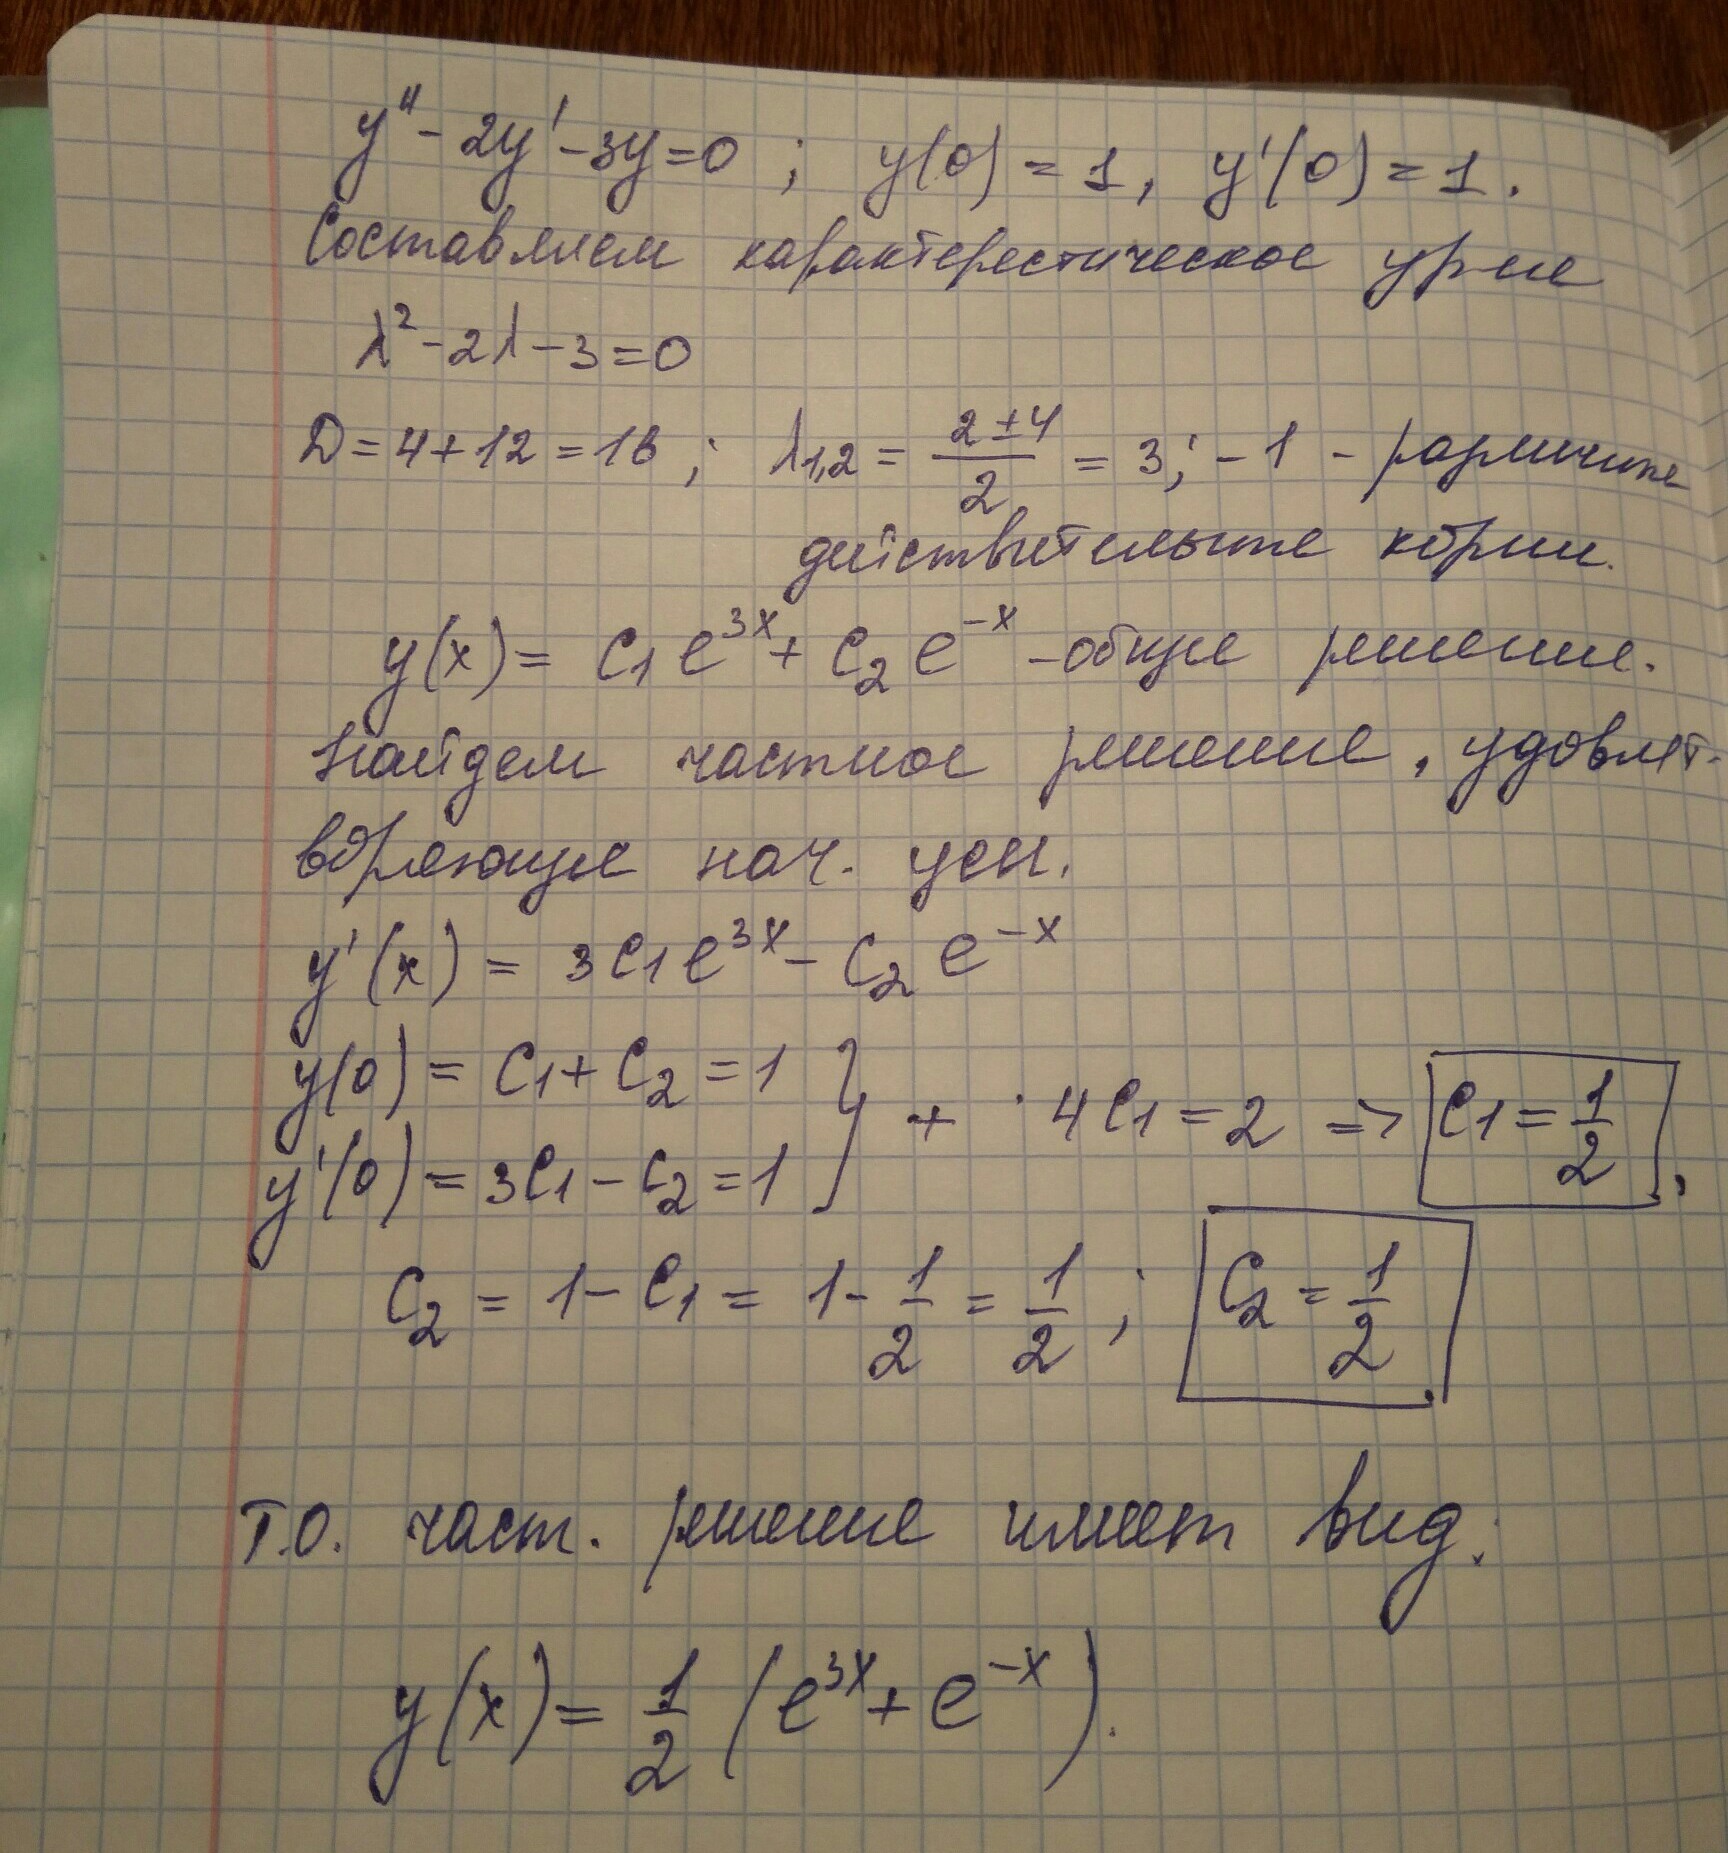 y'' - 2y' - 3y = 0 ; y(0) = 1, y'(0) = 1.
Составляем характерестическое ур-ие
λ² - 2λ - 3 = 0
D = 4 + 12 = 16 ; λ1,2 = (2 ± 4)/2 = 3; -1 - различные
действительные корни.
y(x) = C₁e^(3x) + C₂e^(-x) - общее решение.
Найдем частное решение, удовлет-
воряющее нач. усл.
y'(x) = 3C₁e^(3x) - C₂e^(-x)
y(0) = C₁ + C₂ = 1 } + 4C₁ = 2 => C₁ = 1/2,
y'(0) = 3C₁ - C₂ = 1
C₂ = 1 - C₁ = 1 - 1/2 = 1/2 ; C₂ = 1/2.
Т.О. част. решение имеет вид:
y(x) = 1/2 (e^(3x) + e^(-x)).